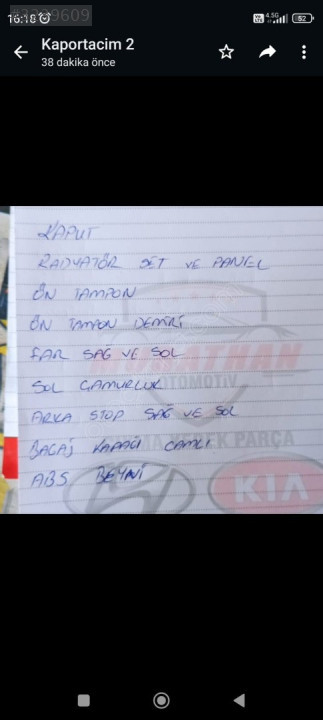 #3799609
16:18
4.5G
52
Kaportacim 2
38 dakika önce
KAPUT
RADYATÖR SET VE PANEL
ÖN TAMPON
ÖN TAMPON DEMİRİ
FAR SAĞ VE SOL
MURATHAN
SOL ÇAMURLUK
OTOMOTİV
ARKA STOP SAĞ VE SOL
YEDEK PARÇA
BAGAJ KAPAĞI CAMLI
ABS BEYNİ
KIA